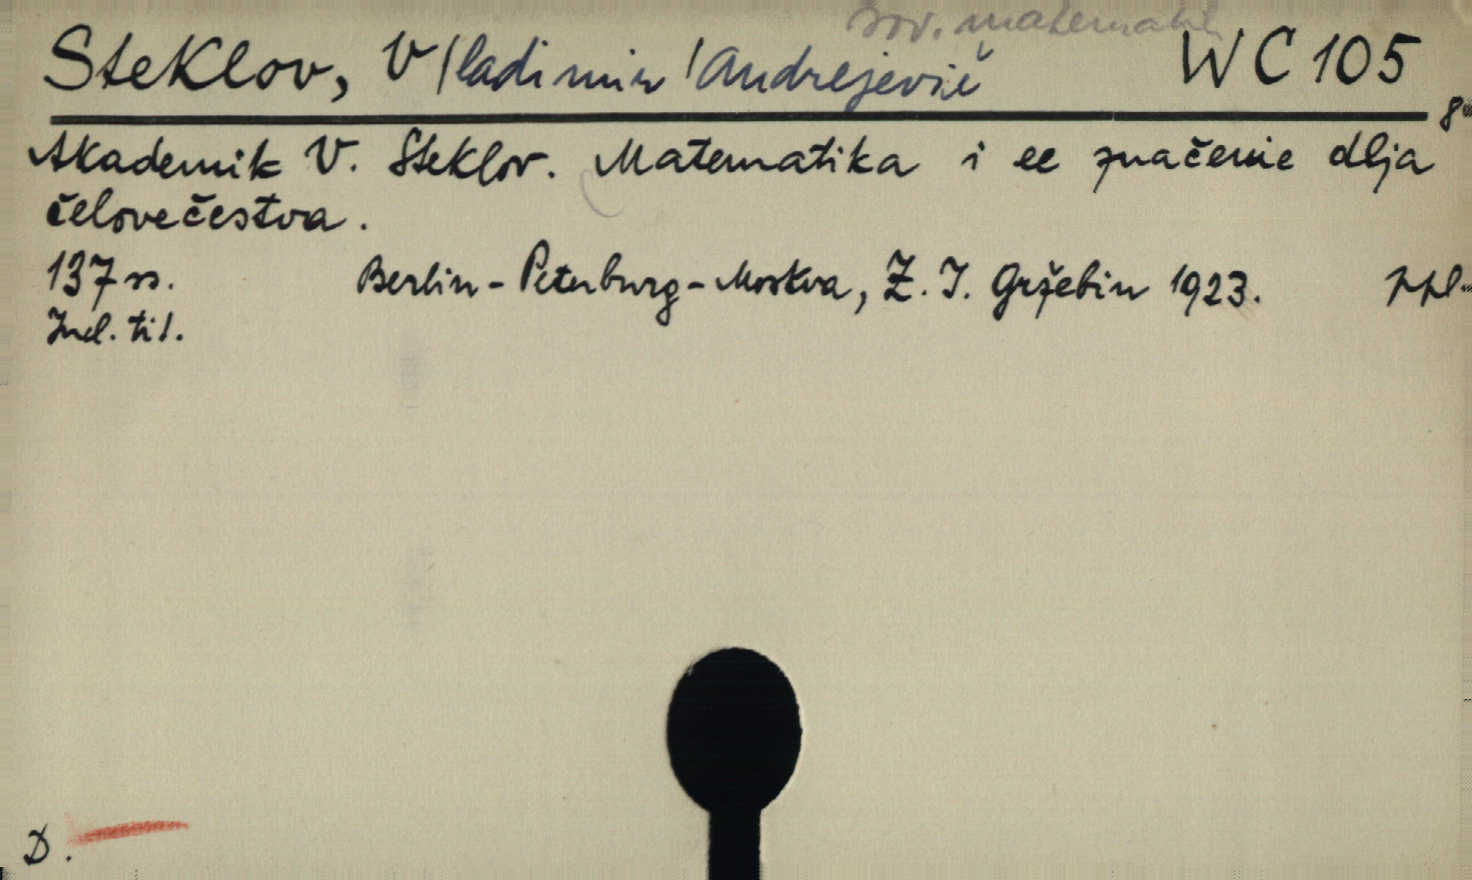 sov. matematik
Steklov, V/ladimir/ Andrejevič WC 105
8°
Akademik V. Steklov. Matematika i ee značenie dlja
čelovečestva.
137 ss. Berlin - Peterburg - Moskva, Z. I. Gržebin 1923. ppl.
Ind. tit.
D.